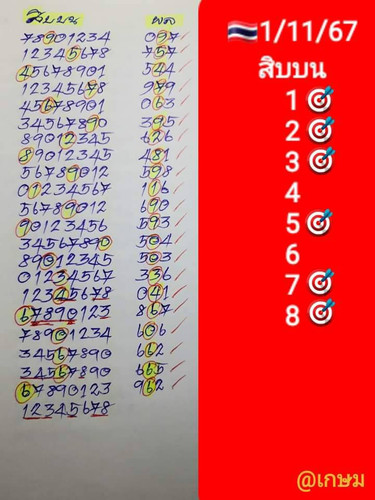 สิบบน ผล
78901234 097
12345678 757
45678901 544
12345678 979
45678901 063
34567890 395
89012345 626
89012345 481
56789012 598
01234567 116
56789012 690
90123456 593
34567890 504
89012345 503
01234567 336
12345678 041
67890123 867
78901234 606
34567890 662
34567890 665
67890123 962
12345678
🇹🇭1/11/67
สิบบน
1 🎯
2 🎯
3 🎯
4
5 🎯
6
7 🎯
8 🎯
@เกษม